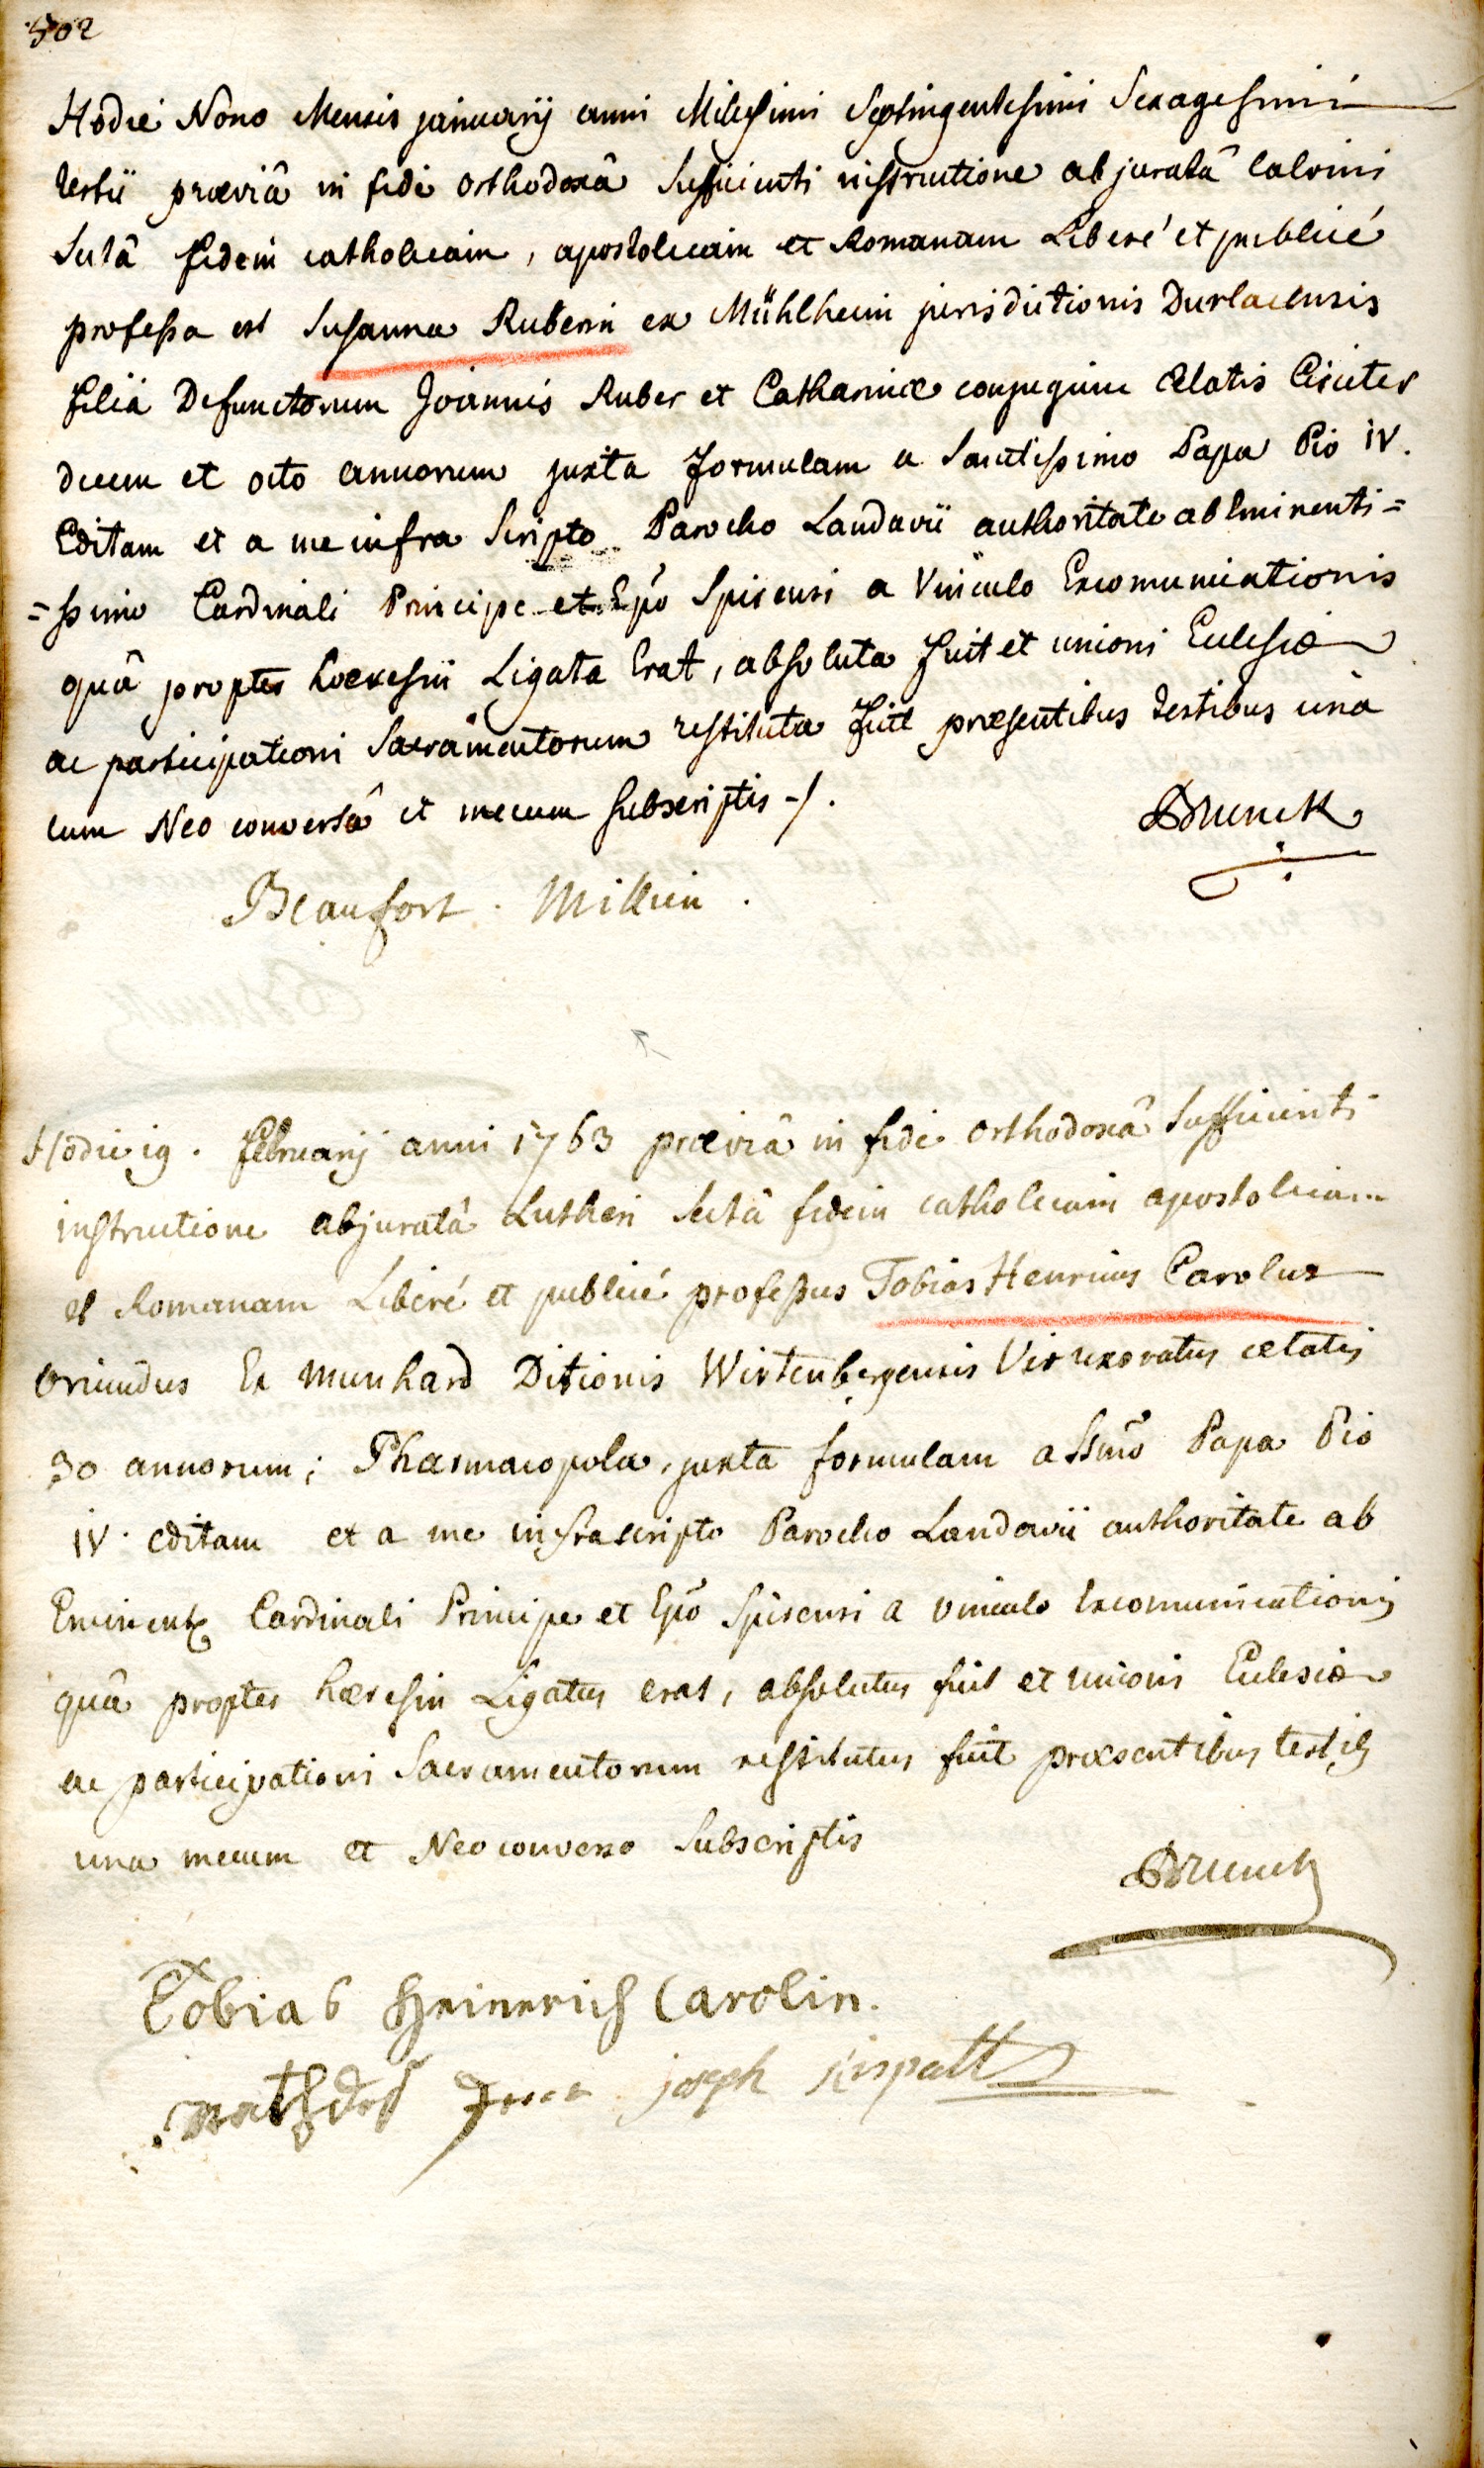 502
Hodie Nono Mensis januarij anni Milesimi Septingentesimi Sexagesimi
tertii præviâ in fide orthodoxâ sufficienti instructione abjuratâ Calvini
Sectâ fidem catholicam, apostolicam et Romanam Liberé et publicé
professa est Susanna Ruberin ex Mühlheim jurisdictionis Durlacensis
filia Defunctorum Joannis Ruber et Catharinæ conjugum Ætatis Circiter
decem et octo annorum juxta formulam a Sanctissimo Papa Pio IV.
Editam et a me infra Scripto Parocho Landavii authoritate ab Eminenti=
=ssimo Cardinali Principe et Epo Spirensi a Vinculo Excomunicationis
quâ propter hæresin Ligata Erat, absoluta fuit et unioni Eclesiæ
ac participationi Sacramentorum restituta fuit præsentibus testibus unâ
cum Neo conversâ et mecum subscriptis -/.
Brunck
Beaufort. Millien.
Hodie 19. februarij anni 1763 præviâ in fide orthodoxâ Sufficienti
instructione abjuratâ Lutheri Sectâ fidem catholicam apostolicam
et Romanam Liberé et publicé professus Tobias Henricus Carolus
oriundus Ex Murrhard Ditionis Wirtenbergensis Vir uxoratus ætatis
30 annorum; Pharmacopola, juxta formulam a SSmo Papa Pio
IV. editam et a me infrascripto Parocho Landavii authoritate ab
Eminent. Cardinali Principe et Epo Spirensi a vinculo Excomunicationis
quâ propter hæresin Ligatus erat, absolutus fuit et unioni Eclesiæ
ac participationi Sacramentorum restitutus fuit præsentibus testib
una mecum et Neo converso Subscriptis
Brunck
Tobias Heinerich Carolin.
joseph Kirpatt